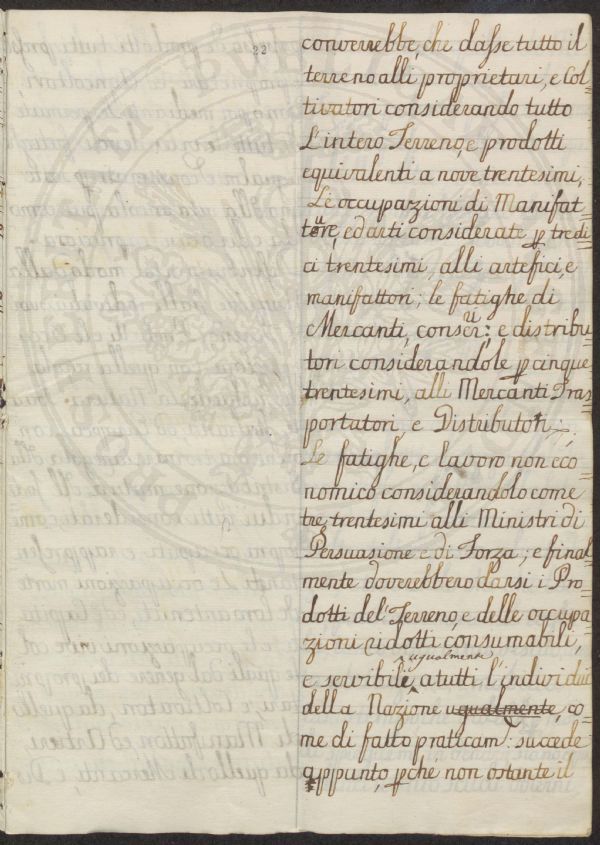 22
converrebbe, che dasse tutto il
terreno alli proprietari, e Col-
tivatori considerando tutto
L'intero Terreno, e prodotti
equivalenti a nove trentesimi,
Le occupazioni di Manifat-
ture, ed arti considerate p tredi-
ci trentesimi, alli artefici, e
manifattori; le fatighe di
Mercanti, e distribu-
tori considerandole p cinque
trentesimi, alli Mercanti Tras-
portatori, e Distributori,
Le fatighe, e lavoro non eco-
nomico considerandolo come
tre trentesimi alli Ministri di
Persuasione e di Forza; e final-
mente doverebbero darsi i Pro-
dotti del Terreno, e delle occupa-
zioni ridotti consumabili,
ugualmente
e servibili, a tutti l'individui
della Nazione ugualmente, co-
me di fatto praticam: succede
appunto, pché non ostante il